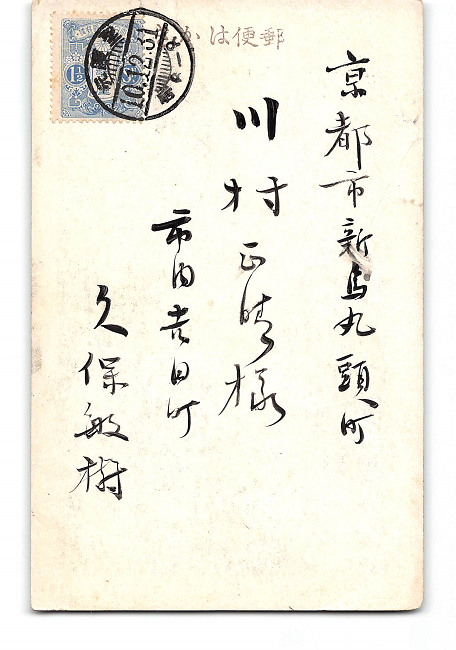 郵便はかき
京都市新烏丸頭町
川村正晴様
市内吉田町
久保敏樹
1½
10.12.31